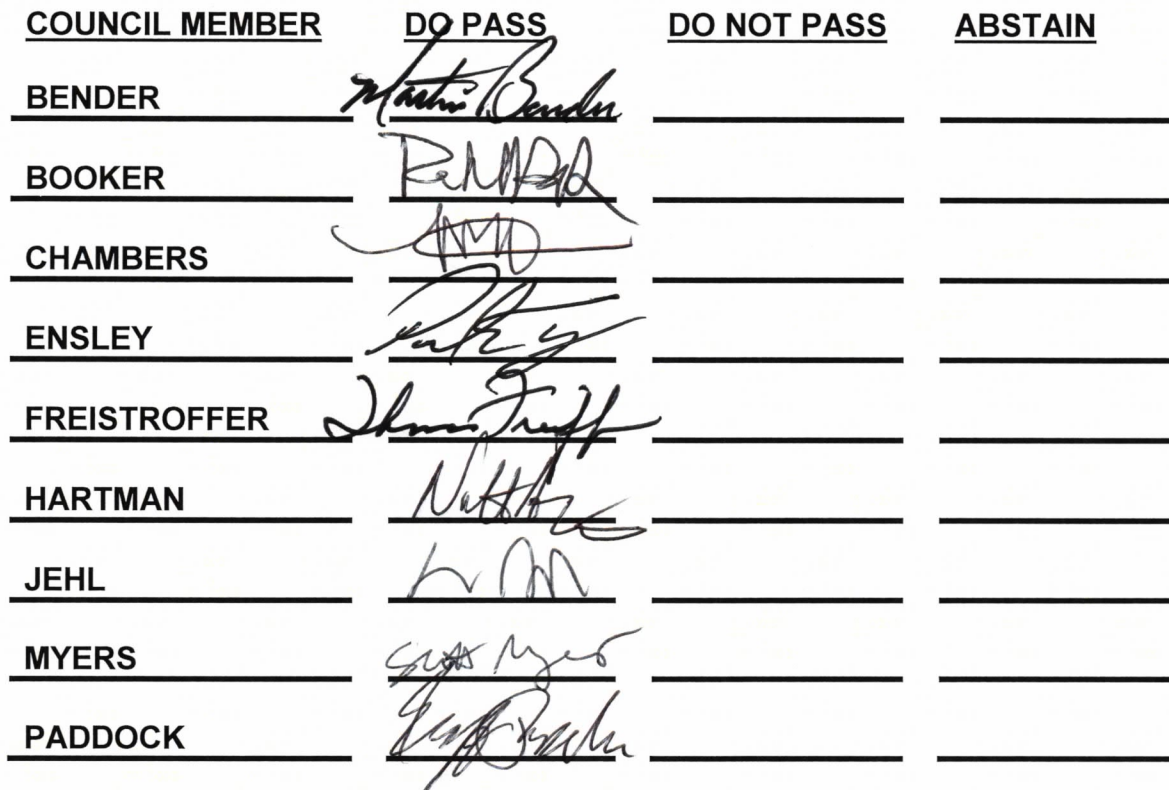 COUNCIL MEMBER DO PASS DO NOT PASS ABSTAIN
BENDER Martin Bender
BOOKER
CHAMBERS
ENSLEY
FREISTROFFER
HARTMAN
JEHL
MYERS Myers
PADDOCK